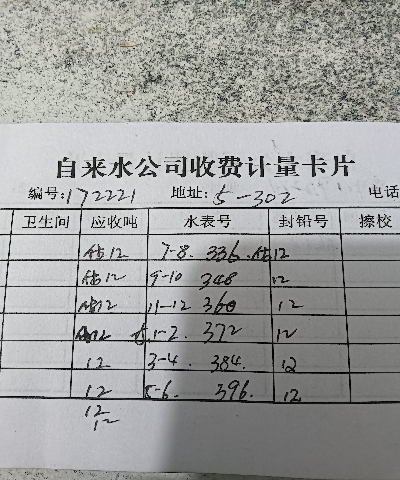 自来水公司收费计量卡片
编号:172221 地址:5-302 电话
卫生间 应收吨 水表号 封铅号 擦校
估12 7-8. 336. 估12
估12 9-10 348 12
估12 11-12 360 12
12 1-2. 372 12
12 3-4. 384. 12
12 5-6. 396. 12
12
12